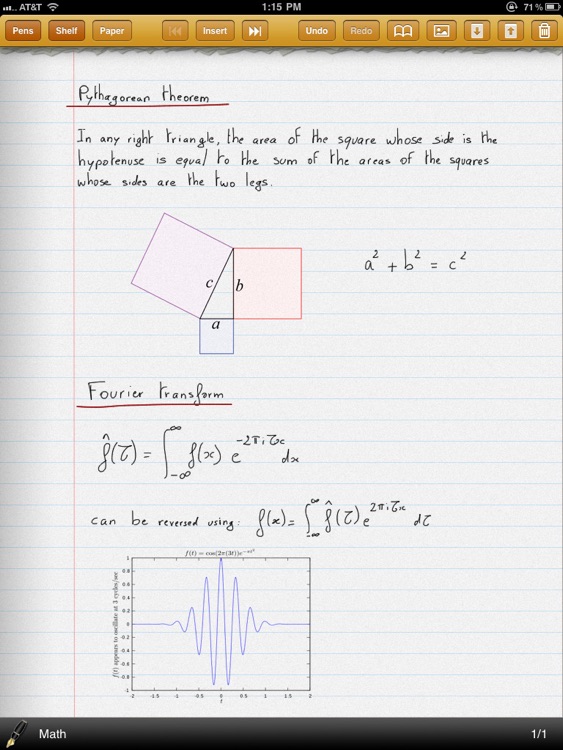 AT&T 1:15 PM 71 %
Pens Shelf Paper Insert Undo Redo
Pythagorean theorem
In any right triangle, the area of the square whose side is the
hypotenuse is equal to the sum of the areas of the squares
whose sides are the two legs.
c b
a
a² + b² = c²
Fourier transform
f̂(τ) = ∫_{-∞}^{∞} f(x) e^{-2πiτx} dx
can be reversed using: f(x) = ∫_{-∞}^{∞} f̂(τ) e^{2πiτx} dτ
f(t) = cos(2π(3t))e^{-πt²}
f(t) appears to oscillate at 3 cycles/sec
1
0.8
0.6
0.4
0.2
0
-0.2
-0.4
-0.6
-0.8
-1
-2 -1.5 -1 -0.5 0 0.5 1 1.5 2
t
Math 1/1